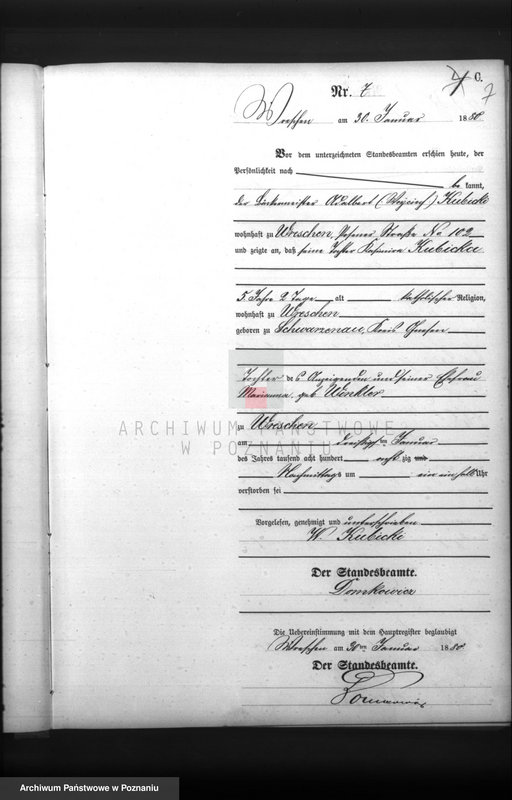 C.
7
Nr. 7
Wreschen am 30. Januar 1880
Vor dem unterzeichneten Standesbeamten erschien heute, der
Persönlichkeit nach
be kannt,
der Bäckermeister Adalbert (Wojciech) Kubicki
wohnhaft zu Wreschen, Posener Straße No 102
und zeigte an, daß seine Tochter Kasimira Kubicka
5 Jahre 2 Tage alt katholischer Religion,
wohnhaft zu Wreschen
geboren zu Schwarzenau, Kreis Gnesen
Tochter des Anzeigenden und seiner Ehefrau
Marianna, geb Winkler
zu Wreschen
am dreißigsten Januar
des Jahres tausend acht hundert acht zig und
Nachmittags um ein einhalb Uhr
verstorben sei
Vorgelesen, genehmigt und unterschrieben
W Kubicki
Der Standesbeamte.
Domkowicz
Die Uebereinstimmung mit dem Hauptregister beglaubigt
Wreschen am 30ten Januar 1880
Der Standesbeamte.
ARCHIWUM PAŃSTWOWE
W POZNANIU
Archiwum Państwowe w Poznaniu